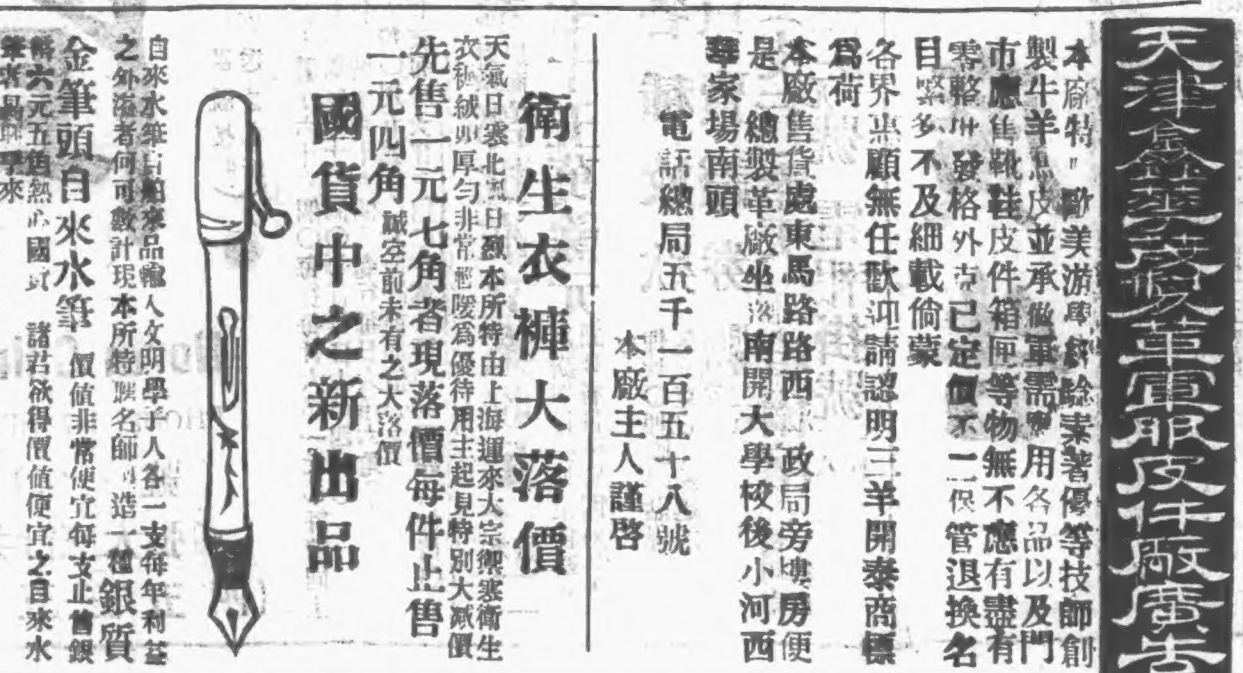 天津鑫華茂製革軍服皮件廠廣告
本廠特 歐美游學經驗素著優等技師創
製牛羊 皮並承做軍需 用各品以及門
市應售靴鞋皮件箱匣等物無不應有盡有
零整 發格外克己定價不二保管退換名
目繁多不及細載倘蒙
各界惠顧無任歡迎請認明三羊開泰商標
爲荷
本廠售貨處東馬路路西 政局旁樓房便
是 總製革廠坐落南開大學校後小河西
華家場南頭
電話總局五千一百五十八號
本廠主人謹啓
衛生衣褲大落價
天氣日寒北風日烈本所特由上海運來大宗禦寒衛生
衣褲絨頭厚勻非常輕暖爲優待用主起見特別大減價
先售一元七角者現落價每件止售
一元四角 誠空前未有之大落價
國貨中之新出品
自來水筆 舶來品 人文明學子人各一支每年利益
之外溢者何可數計現本所特 名師 造一種銀質
金筆頭自來水筆 價値非常便宜每支止售銀
六元五角熱心國貨 諸君欲得價値便宜之自來水
筆者 來